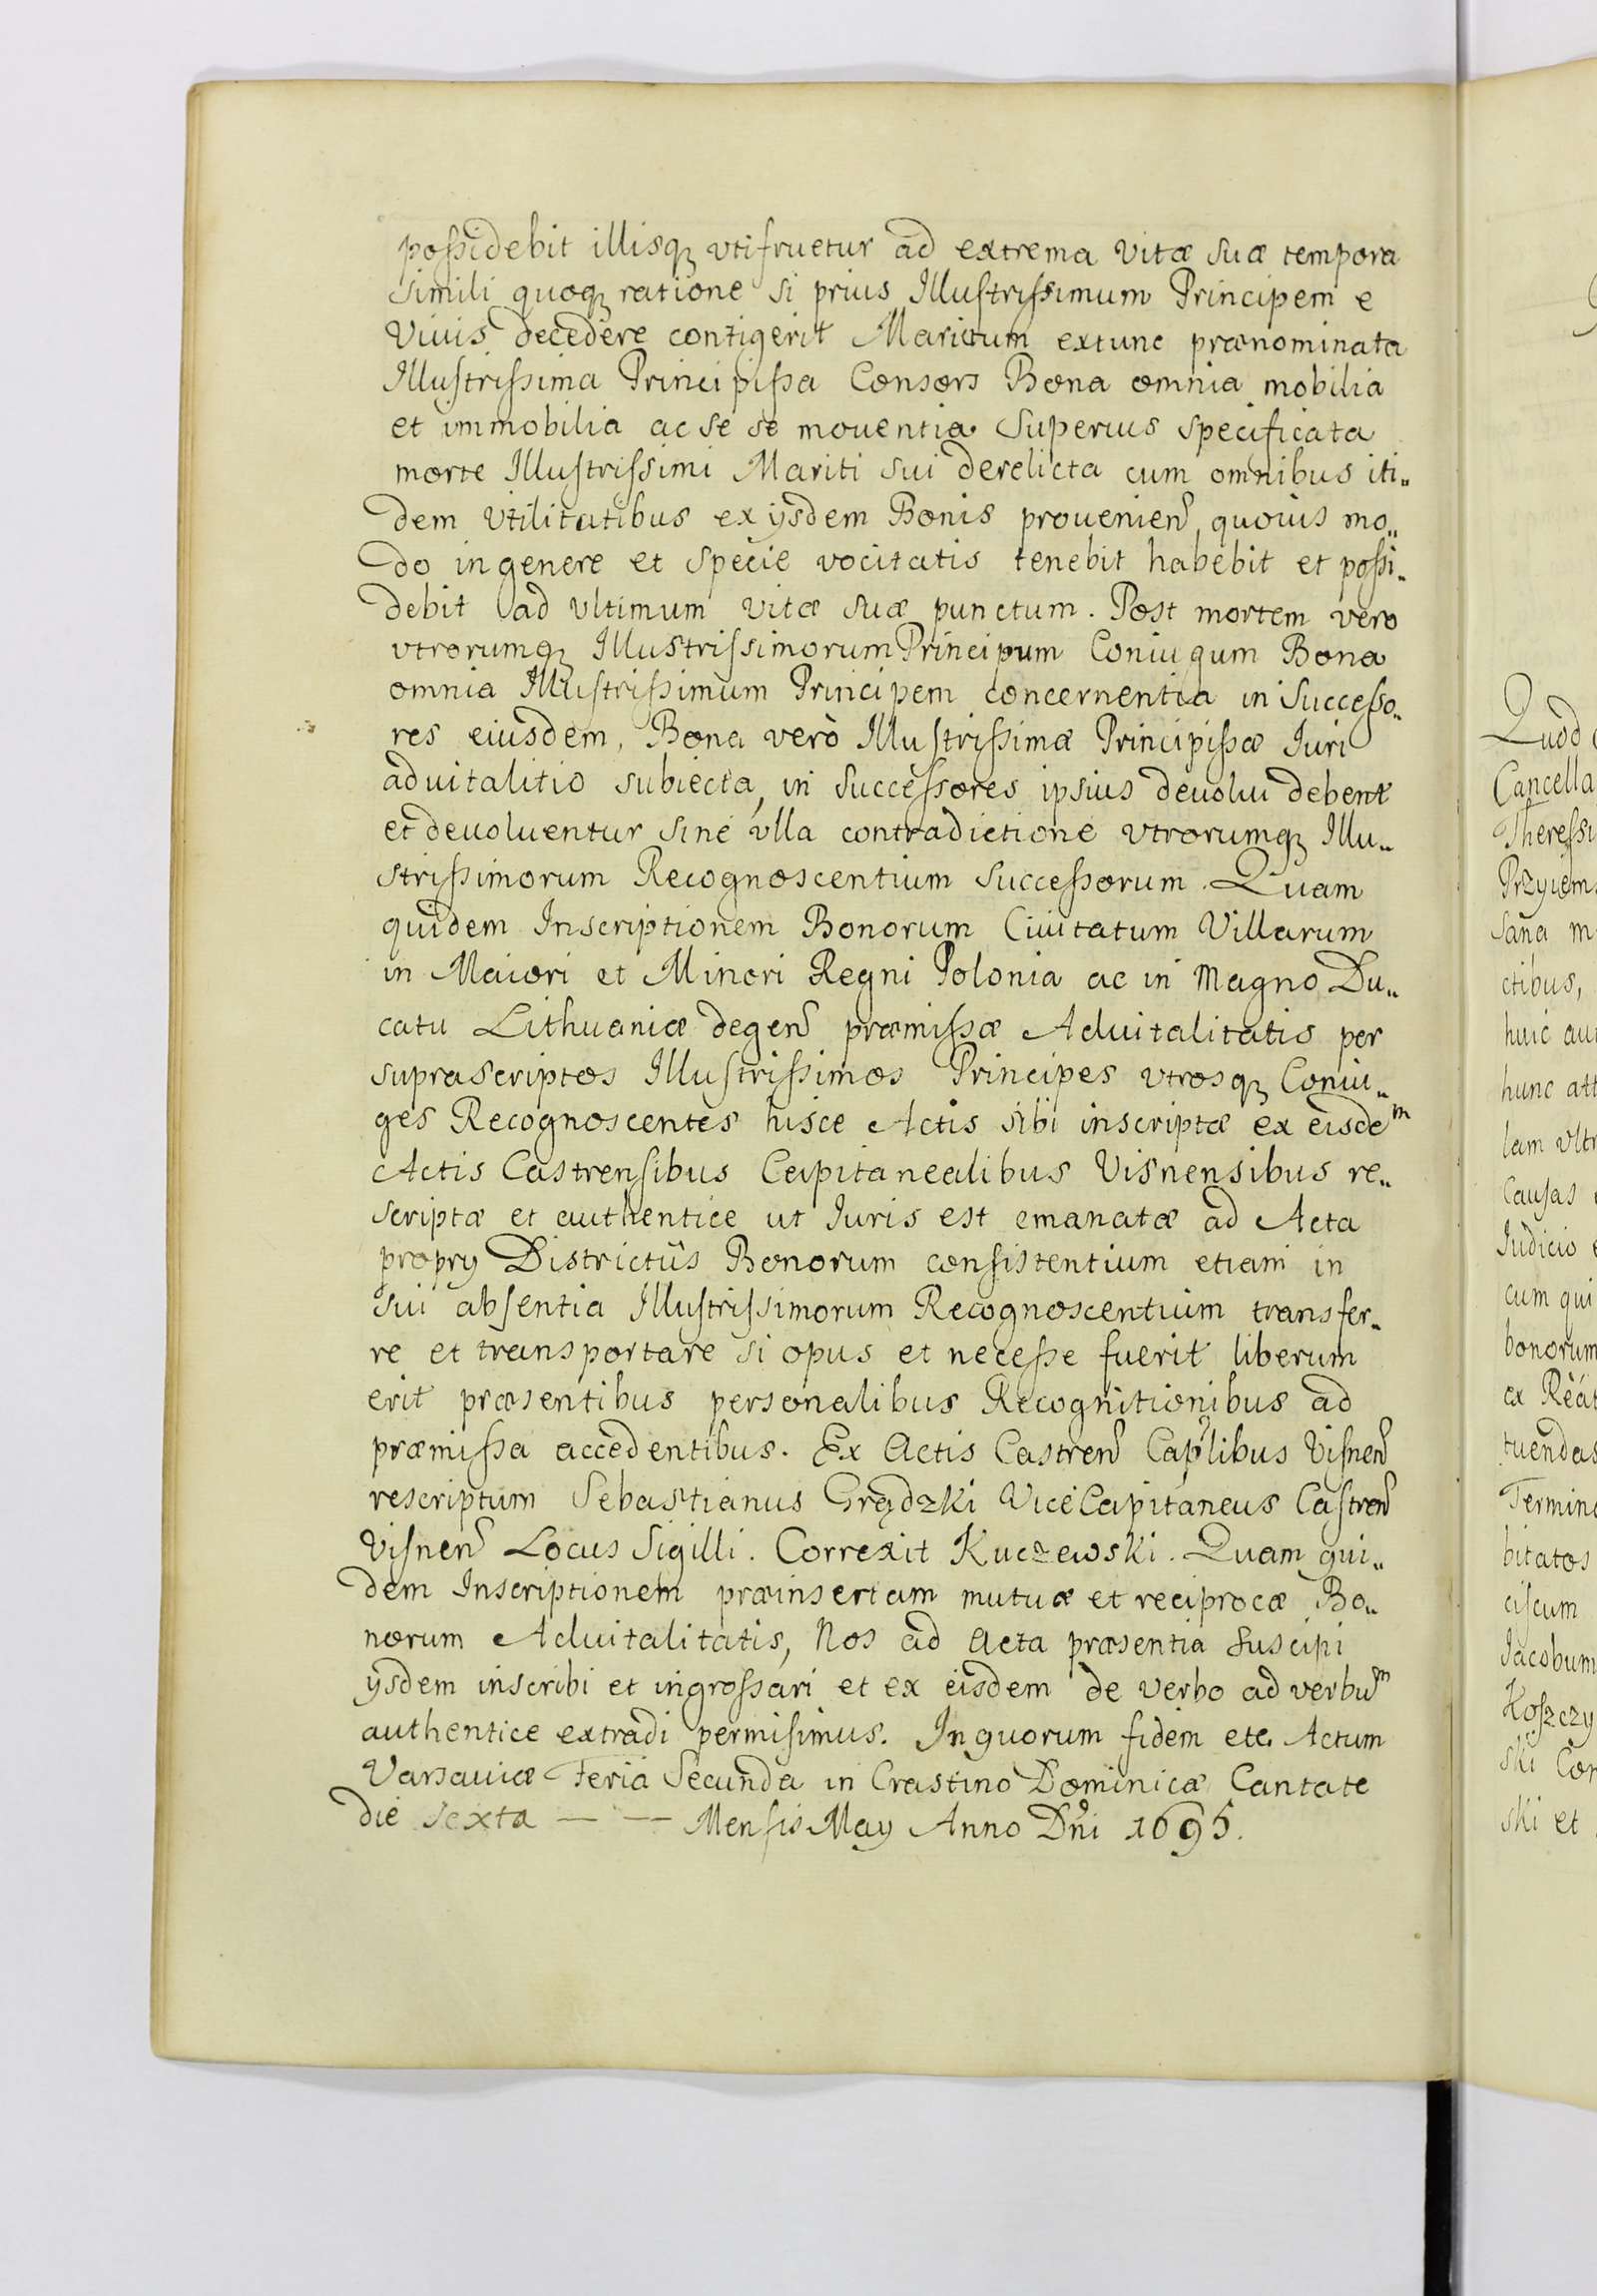 possidebit illisq₃ vtifruetur ad extrema vitæ suæ tempora
simili quoq₃ ratione si prius Illustrissimum Principem e
viuis decedere contigerit Maritum extunc prænominata
Illustrissima Principissa Consors Bona omnia mobilia
et immobilia ac se se mouentia superius specificata
morte Illustrissimi Mariti sui derelicta cum omnibus iti„
dem vtilitatibus ex ijsdem Bonis prouenien̄ quouis mo„
do in genere et specie vocitatis tenebit habebit et possi„
debit ad vltimum vitæ suæ punctum. Post mortem vero
vtrorumq₃ Illustrissimorum Principum Coniugum Bona
omnia Illustrissimum Principem concernentia in Successo„
res eiusdem, Bona verò Illustrissimæ Principissæ Iuri
aduitalitio subiecta, in Successores ipsius deuolui debent
et deuoluentur sine vlla contradictione vtrorumq₃ Illu„
strissimorum Recognoscentium successorum. Quam
quidem Inscriptionem Bonorum Ciuitatum Villarum
in Maiori et Minori Regni Polonia ac in Magno Du„
catu Lithuaniæ degen̄ præmissæ Aduitalitatis per
suprascriptos Illustrissimos Principes vtrosq₃ Coniu„
ges Recognoscentes hisce Actis sibi inscriptæ ex eisdem
Actis Castrensibus Capitanealibus Visnensibus re„
scriptæ et authentice ut Iuris est emanatæ ad Acta
proprij Districtûs Bonorum consistentium etiam in
sui absentia Illustrissimorum Recognoscentium transfer„
re et transportare si opus et necesse fuerit liberum
erit præsentibus personalibus Recognitionibus ad
præmissa accedentibus. Ex Actis Castren̄ Cap̄libus Visnen̄
rescriptum Sebastianus Grądzki ViceCapitaneus Castren̄
Visnen̄ Locus Sigilli. Correxit Kuczewski. Quam qui„
dem Inscriptionem præinsertam mutuæ et reciprocæ Bo„
norum Aduitalitatis, Nos ad Acta præsentia suscipi
ijsdem inscribi et ingrossari et ex eisdem de verbo ad verbum
authentice extradi permisimus. In quorum fidem etc. Actum
Varsauiæ Feria Secunda in Crastino Dominicæ Cantate
die sexta — — Mensis Maij Anno Dn̄i 1695.
Quod
Cancella
Theressi
Przyiem
Sana m
ctibus,
huic au
hunc att
lam vltr
Causas
Iudicio
cum qui
bonorum
ex Reat
tuendas
Termino
bitatos
ciscum
Jacobum
Koszczy
ski Con
ski et